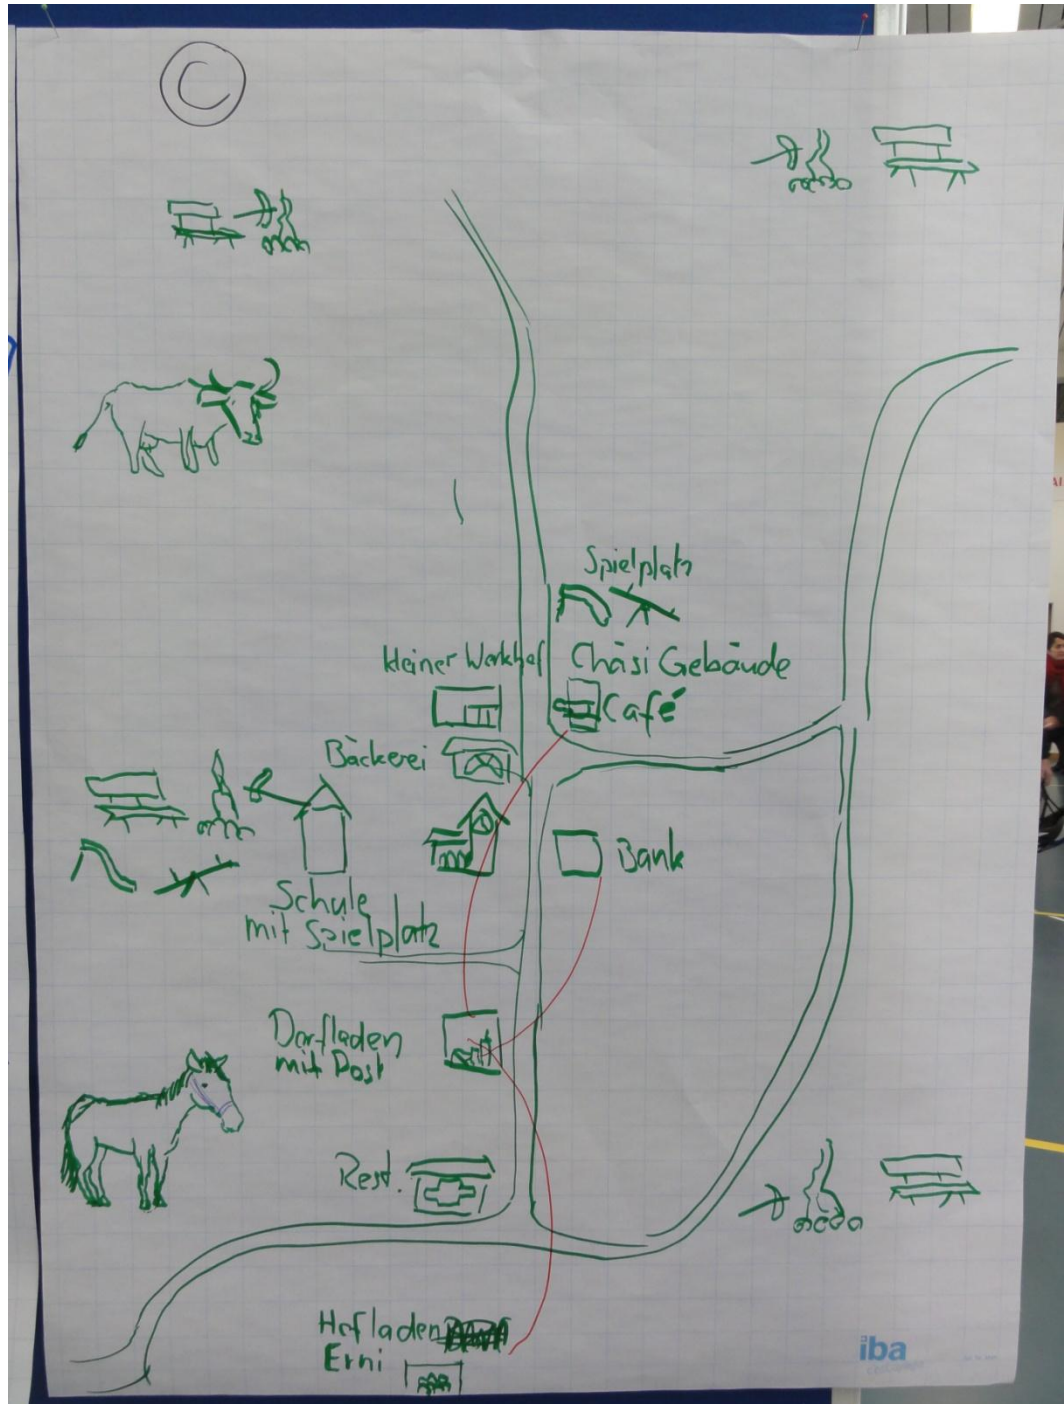 C
Spielplatz
kleiner Werkhof
Chäsi Gebäude
Café
Bäckerei
Bank
Schule
mit Spielplatz
Dorfladen
mit Post
Rest.
Hofladen
Erni
iba